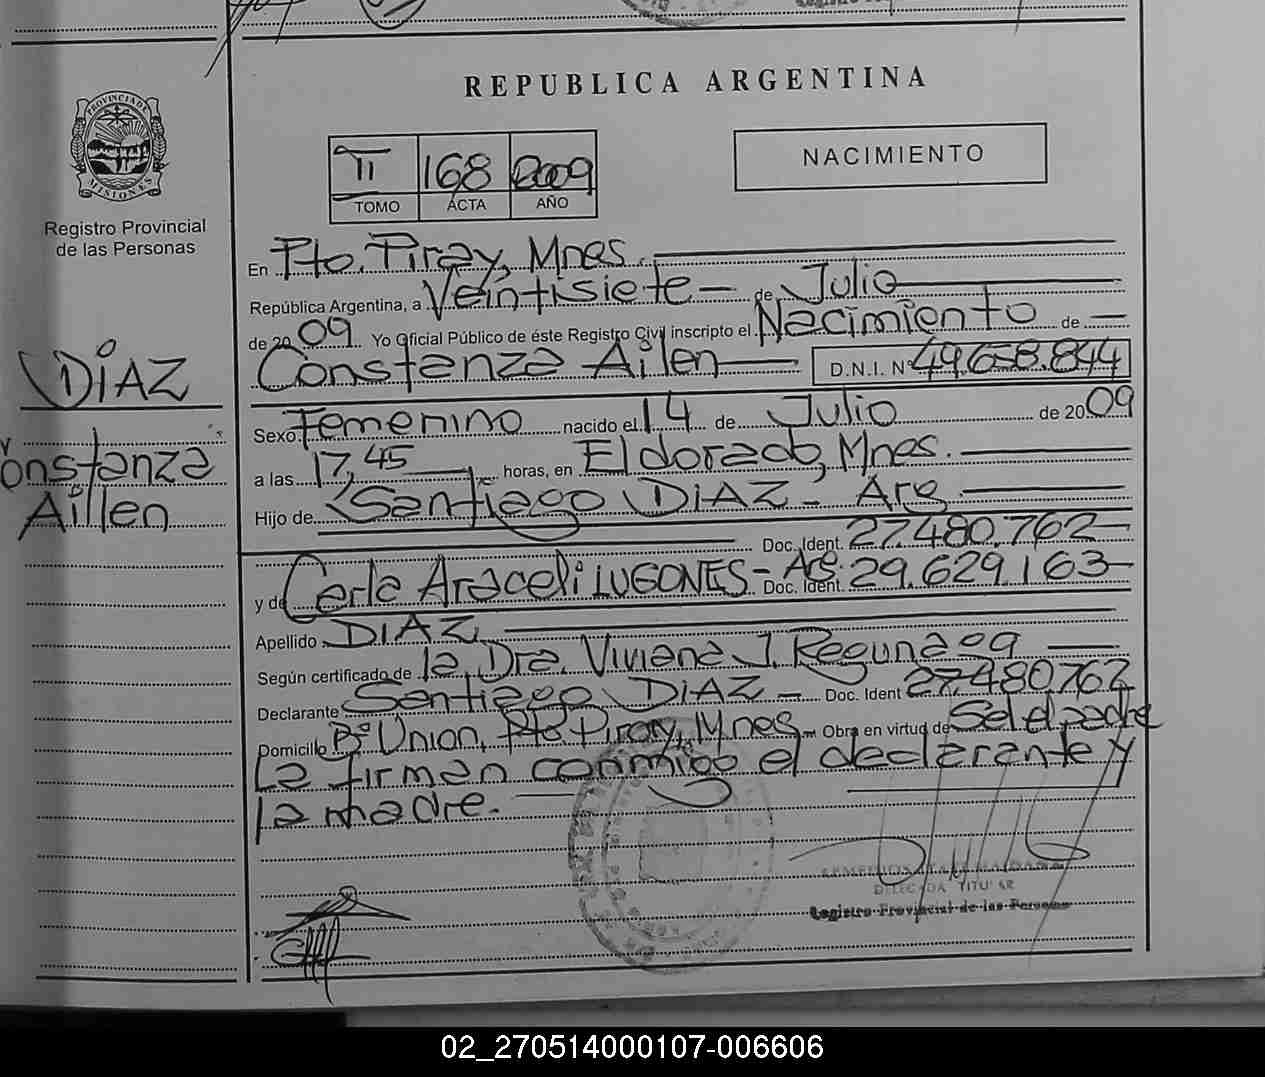 REPUBLICA ARGENTINA
PROVINCIA DE MISIONES
Registro Provincial
de las Personas
II 168 2009
TOMO ACTA AÑO
NACIMIENTO
En Pto. Piray, Mnes.
República Argentina, a Veintisiete de Julio
de 2009 Yo Oficial Público de éste Registro Civil inscripto el Nacimiento de
Constanza Ailen D.N.I. Nº 49.658.844
DIAZ
Constanza
Aillen
Sexo Femenino nacido el 14 de Julio de 2009
a las 17,45 horas, en Eldorado, Mnes.
Hijo de Santiago DIAZ - Arg.
Doc. Ident. 27.480.762
y de Carla Araceli LUGONES - Arg. Doc. Ident. 29.629.163
Apellido DIAZ
Según certificado de la Dra. Viviana J. Regunaga
Declarante Santiago DIAZ - Doc. Ident 27.480.762
Domicilio Bº Union, Pto Piray, Mnes. Obra en virtud de Ser el padre
La firman conmigo el declarante y
la madre.
DELEGADA TITULAR
Registro Provincial de las Personas
02_270514000107-006606